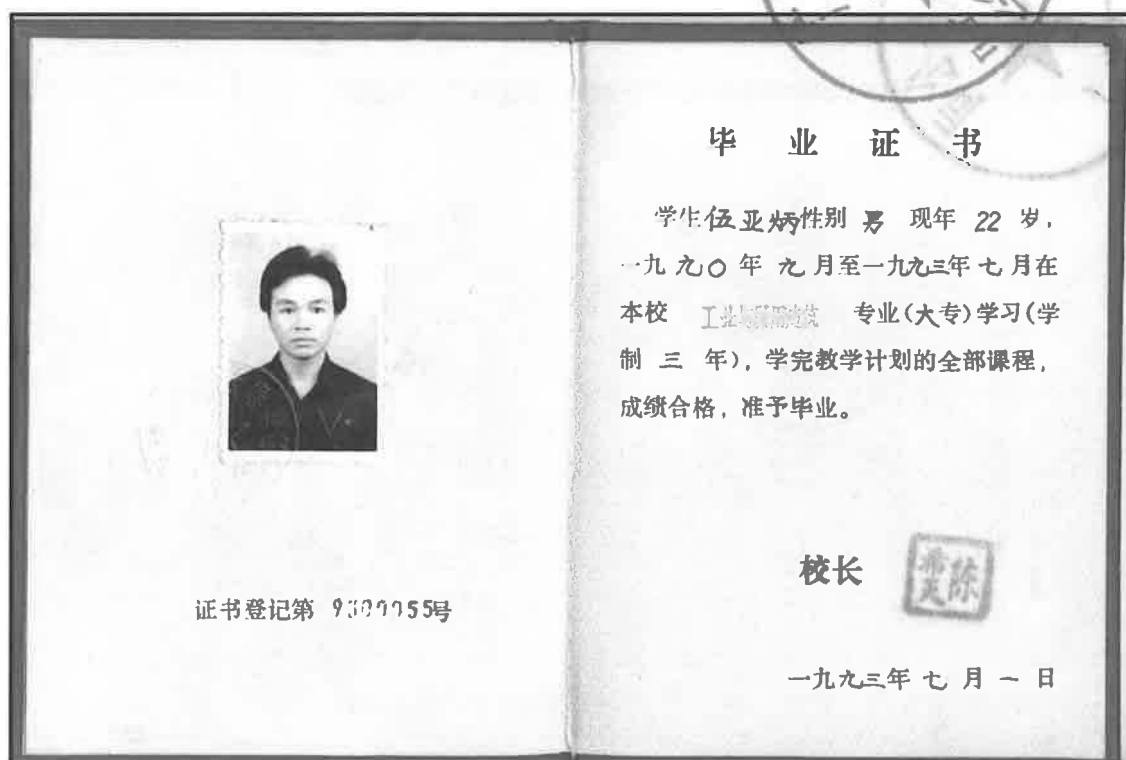 证书登记第 9300055号
毕业证书
学生伍亚炳性别 男 现年 22 岁，
一九九〇年 九月至一九九三年七月在
本校 工业与民用建筑 专业（大专）学习（学
制 三 年），学完教学计划的全部课程，
成绩合格，准予毕业。
校长
一九九三年 七 月 一 日